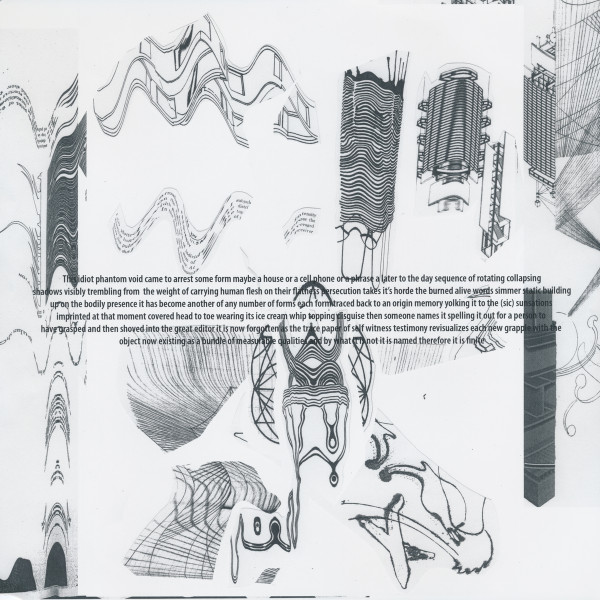 This idiot phantom void came to arrest some form maybe a house or a cell phone or a phrase a later to the day sequence of rotating collapsing
shadows visibly trembling from the weight of carrying human flesh on their flatness persecution takes it's horde the burned alive words simmer static building
up on the bodily presence it has become another of any number of forms each form traced back to an origin memory yolking it to the (sic) sunsations
imprinted at that moment covered head to toe wearing its ice cream whip topping disguise then someone names it spelling it out for a person to
have grasped and then shoved into the great editor it is now forgotten as the trace paper of self witness testimony revisualizes each new grapple with the
object now existing as a bundle of measurable qualities and by what it is not it is named therefore it is finite